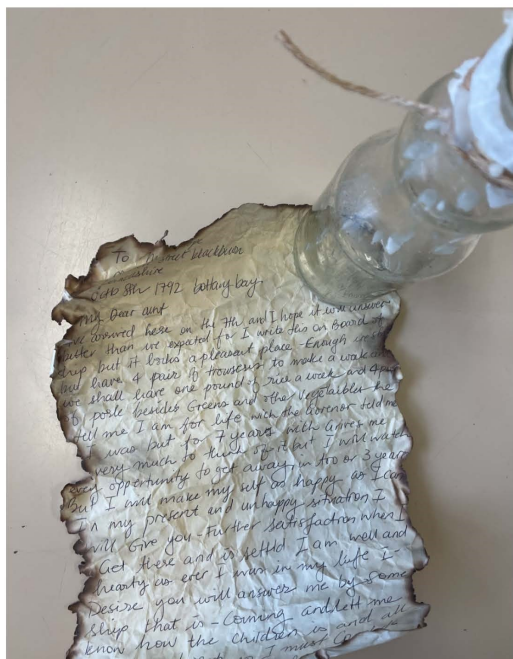 To blackburn
octb 8th 1792 bottany bay
My Dear aunt
we arrived here on the 7th and I hope it will answer
better than we expated for I write this on Board of
ship but it looks a pleasant place - Enough we
but have 4 pair of trousers to make a wake and
we shall have one pound of rice a week and 4
of pork besides Greens and other vegetables the
tell me I am for life with the Govenor told me
I was but for 7 years with Grives me
very much to think of it but I will watch
every opportunity to get away in too or 3 years
But I will make my self as happy as I can
in my present and unhappy situation I
will Give you - further Satisfaction when I
Get there and is settld I am well and
hearty as ever I was in my life I -
Desire you will answer me by some
ship that is - Coming and lett me
know how the children is and all
I must